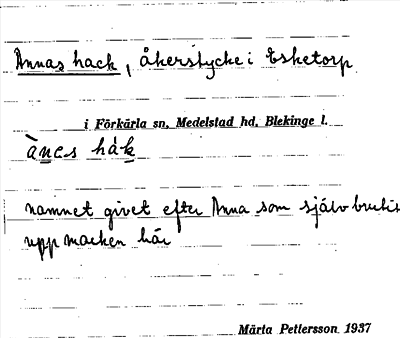 Annas hack, åkerstycke i Esketorp
i Förkärla sn. Medelstad hd. Blekinge l.
ànes håk
namnet givet efter Anna som själv brutit
upp marken här
Märta Pettersson 1937